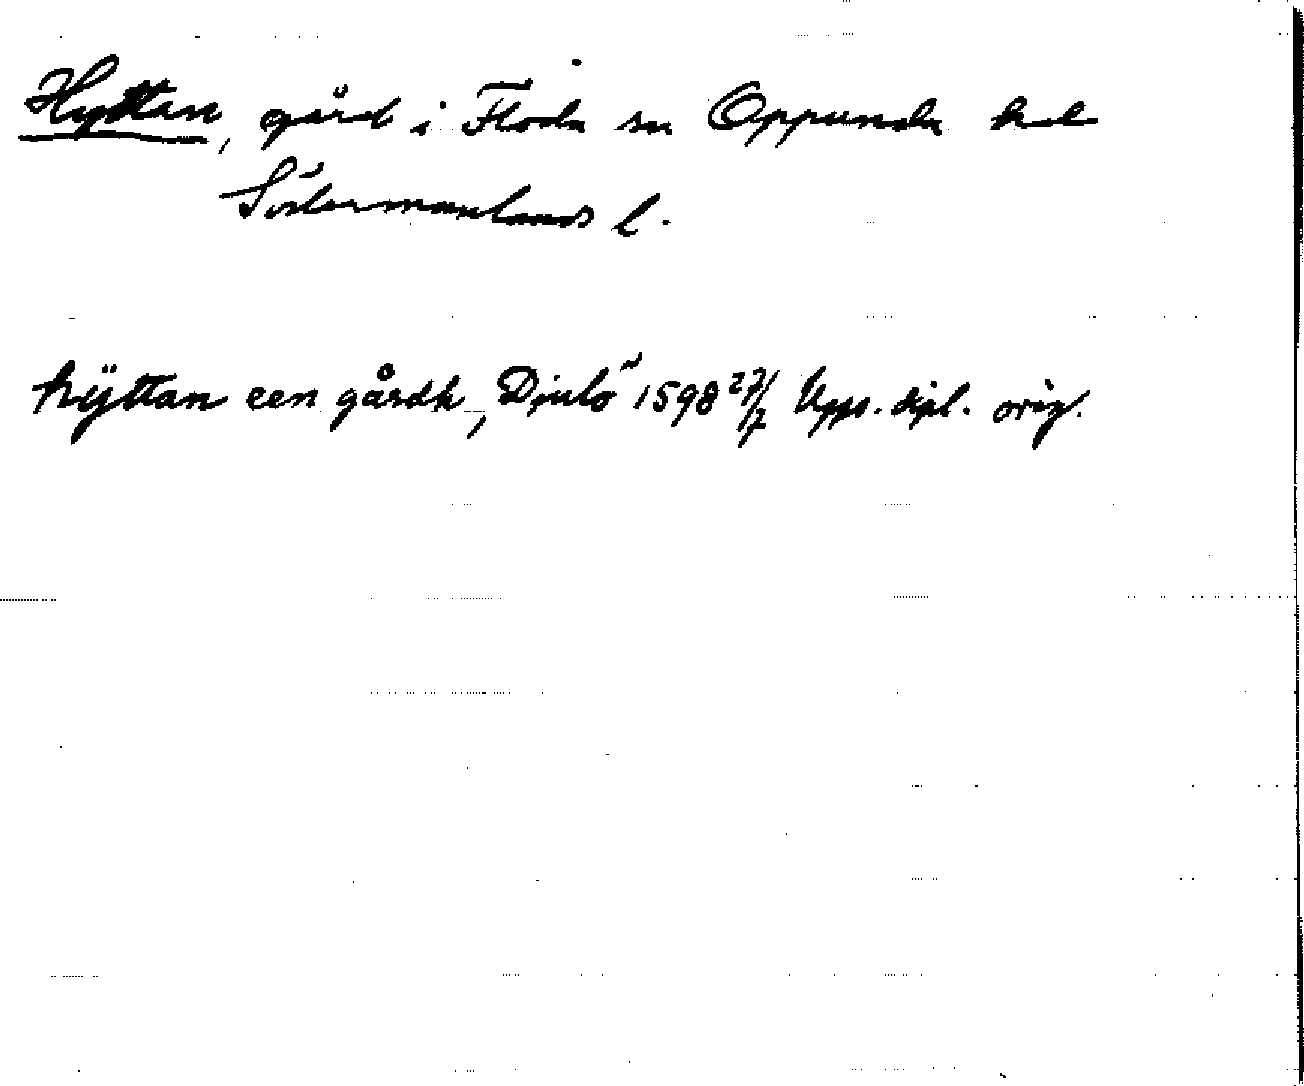 Hyttan, gård i Floda sn Oppunda hd
Södermanlands l.
hÿttan een gårdh, Djulö 1598 27/7 Upps. dipl. orig.